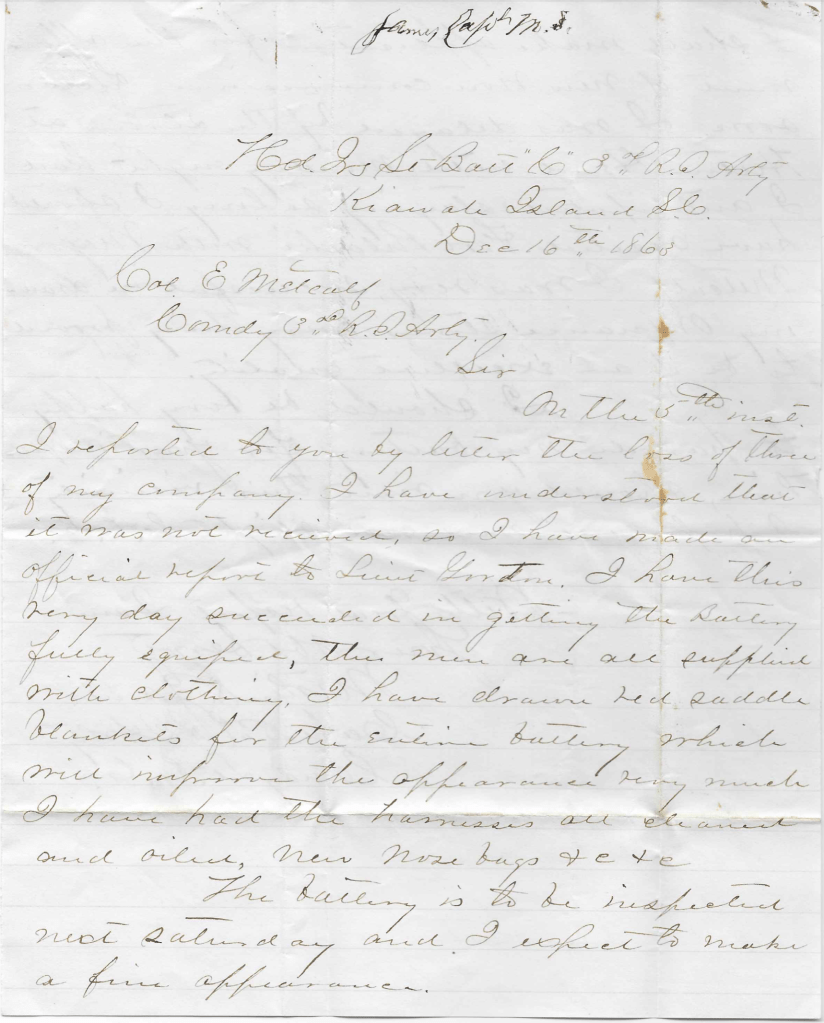 James, Capt M. J.
Hd. Qrs Lt Batt "C" 3rd R. I. Arty
Kiawah Island S.C.
Dec 16th 1863
Col. E Metcalf
Comdg 3rd R. I. Arty.
Sir
On the 5th inst.
I reported to you by letter the loss of three
of my company. I have understood that
it was not recieved, so I have made an
official report to Lieut Gorton. I have this
very day succeeded in getting the Battery
fully equiped, the men are all supplied
with clothing. I have drawn red saddle
blankets for the entire battery which
will improve the appearance very much
I have had the harnesses all cleaned
and oiled, new nose bags &c &c
The battery is to be inspected
next saturday and I expect to make
a fine appearance.